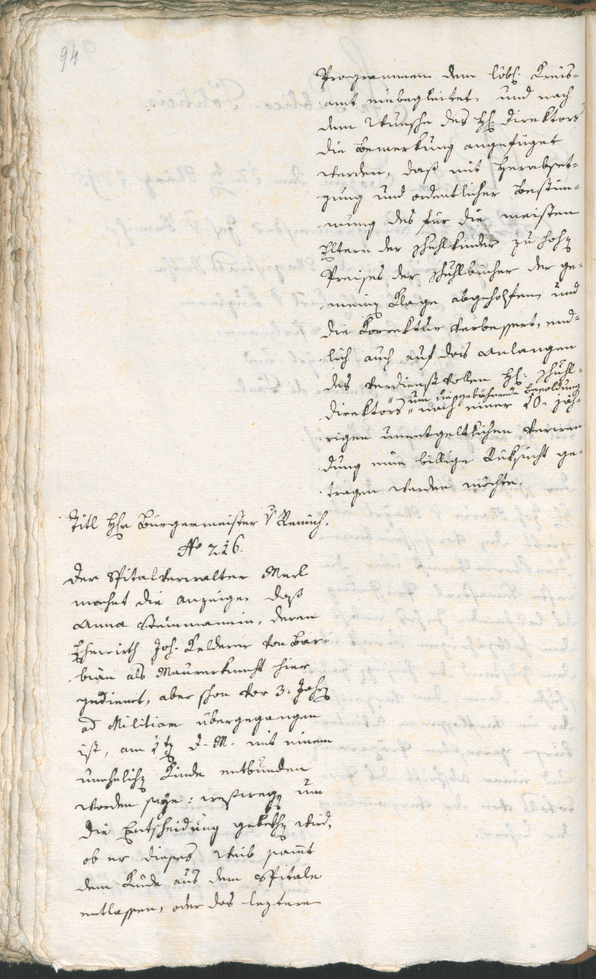 94
Programmen dem löbl. Kreis-
amt einbegleitet, und nach
dem Wunsche des H. Direktors
die Bemerkung angefüget
werden, daß mit Herabset-
zung und ordentlicher Bestim-
mung des für die meisten
Eltern der Schulkinder zu hohen
Preises der Schulbücher der ge-
meinen Klage abgeholfen, und
die Korrektur verbessert, end-
lich auch auf das Anlangen
des verdienstvollen H. Schul-
direktors um die gebührende Besoldung
nach einer 10-jäh-
rigen unentgeltlichen Verwen-
dung eine billige Rücksicht ge-
tragen werden möchte.
Titl Herr Bürgermeister v Remich.
No 216.
Der Spitalverwalter Merl
machet die Anzeige, daß
Anna, deren
Ehewirth Joh. Kelderer von Bar-
bian als Maurerknecht hier
gedienet, aber schon vor 3. Jahren
ad Militiam übergegangen
ist, am d. M. mit einem
unehelichen Kinde entbunden
worden seye: weßwegen um
die Entscheidung gebethen wird,
ob er dieses Weib sammt
dem Kinde aus dem Spitale
entlassen, oder das letztere